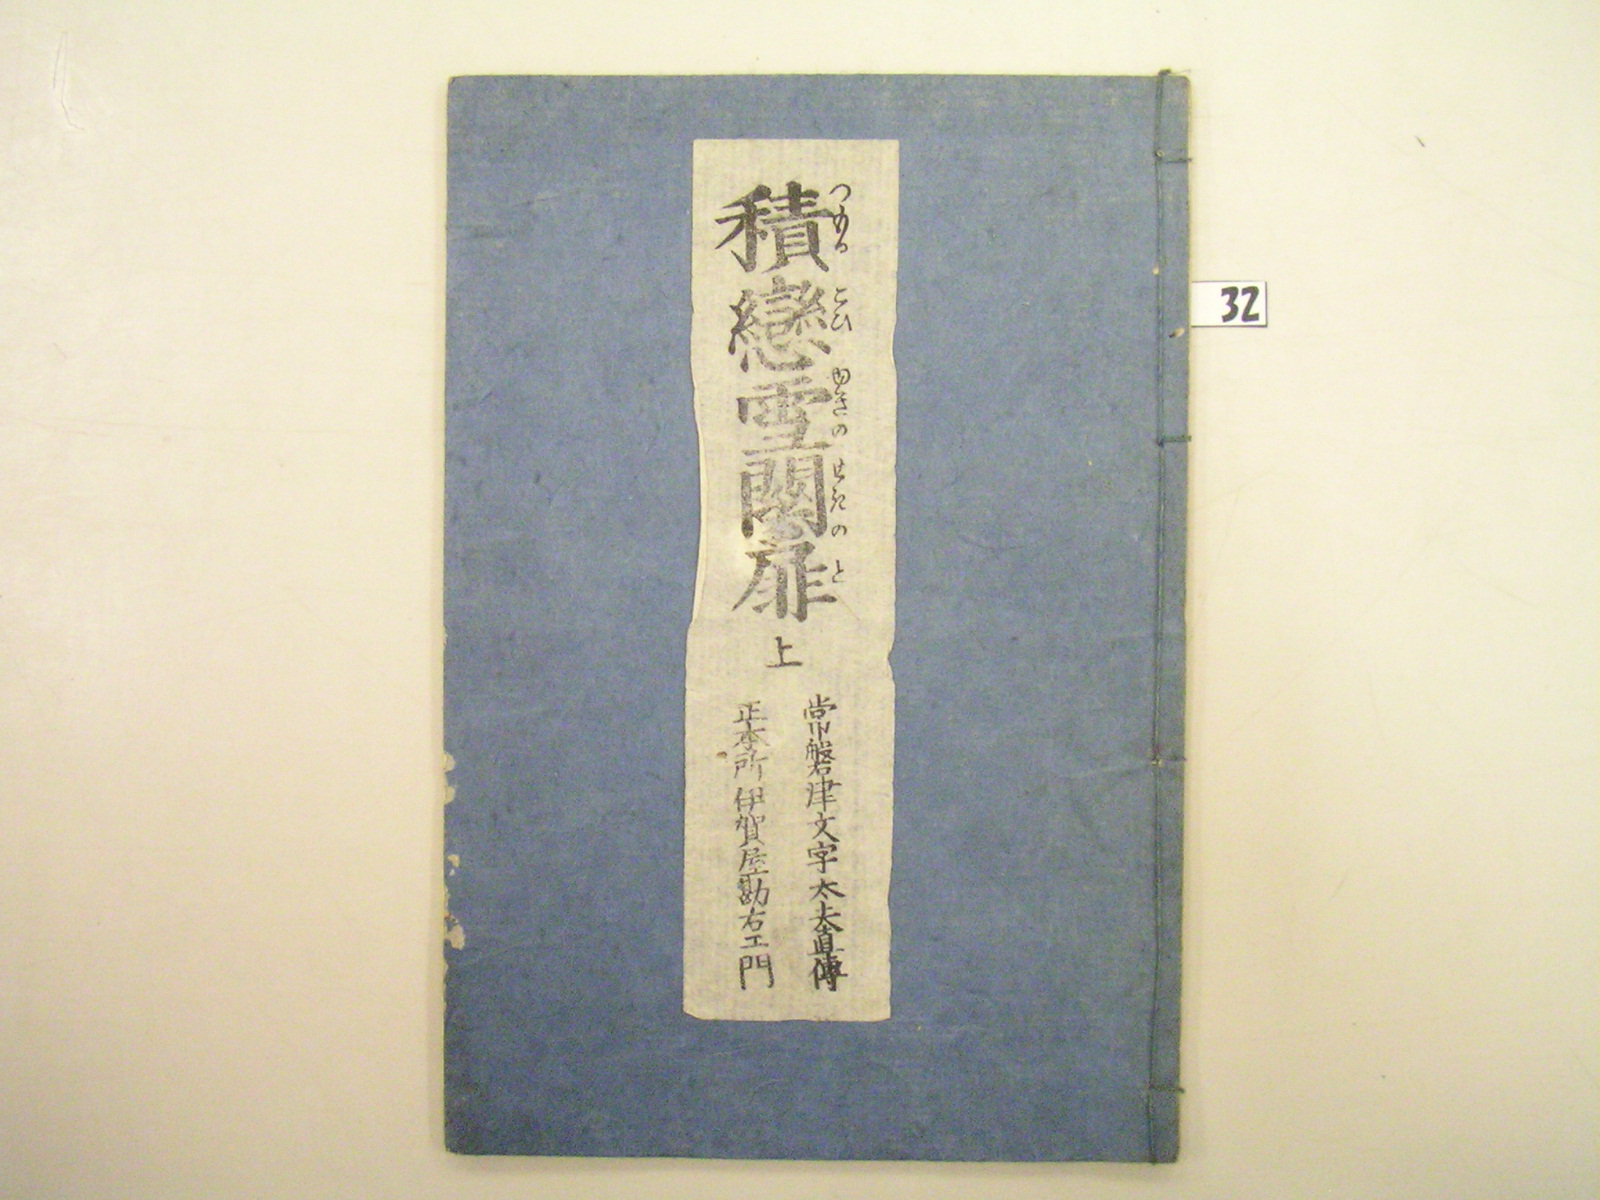 積戀雪関扉
つもるこひゆきのせきのと
上
常磐津文字太夫直傳
正本所伊賀屋勘右エ門
32